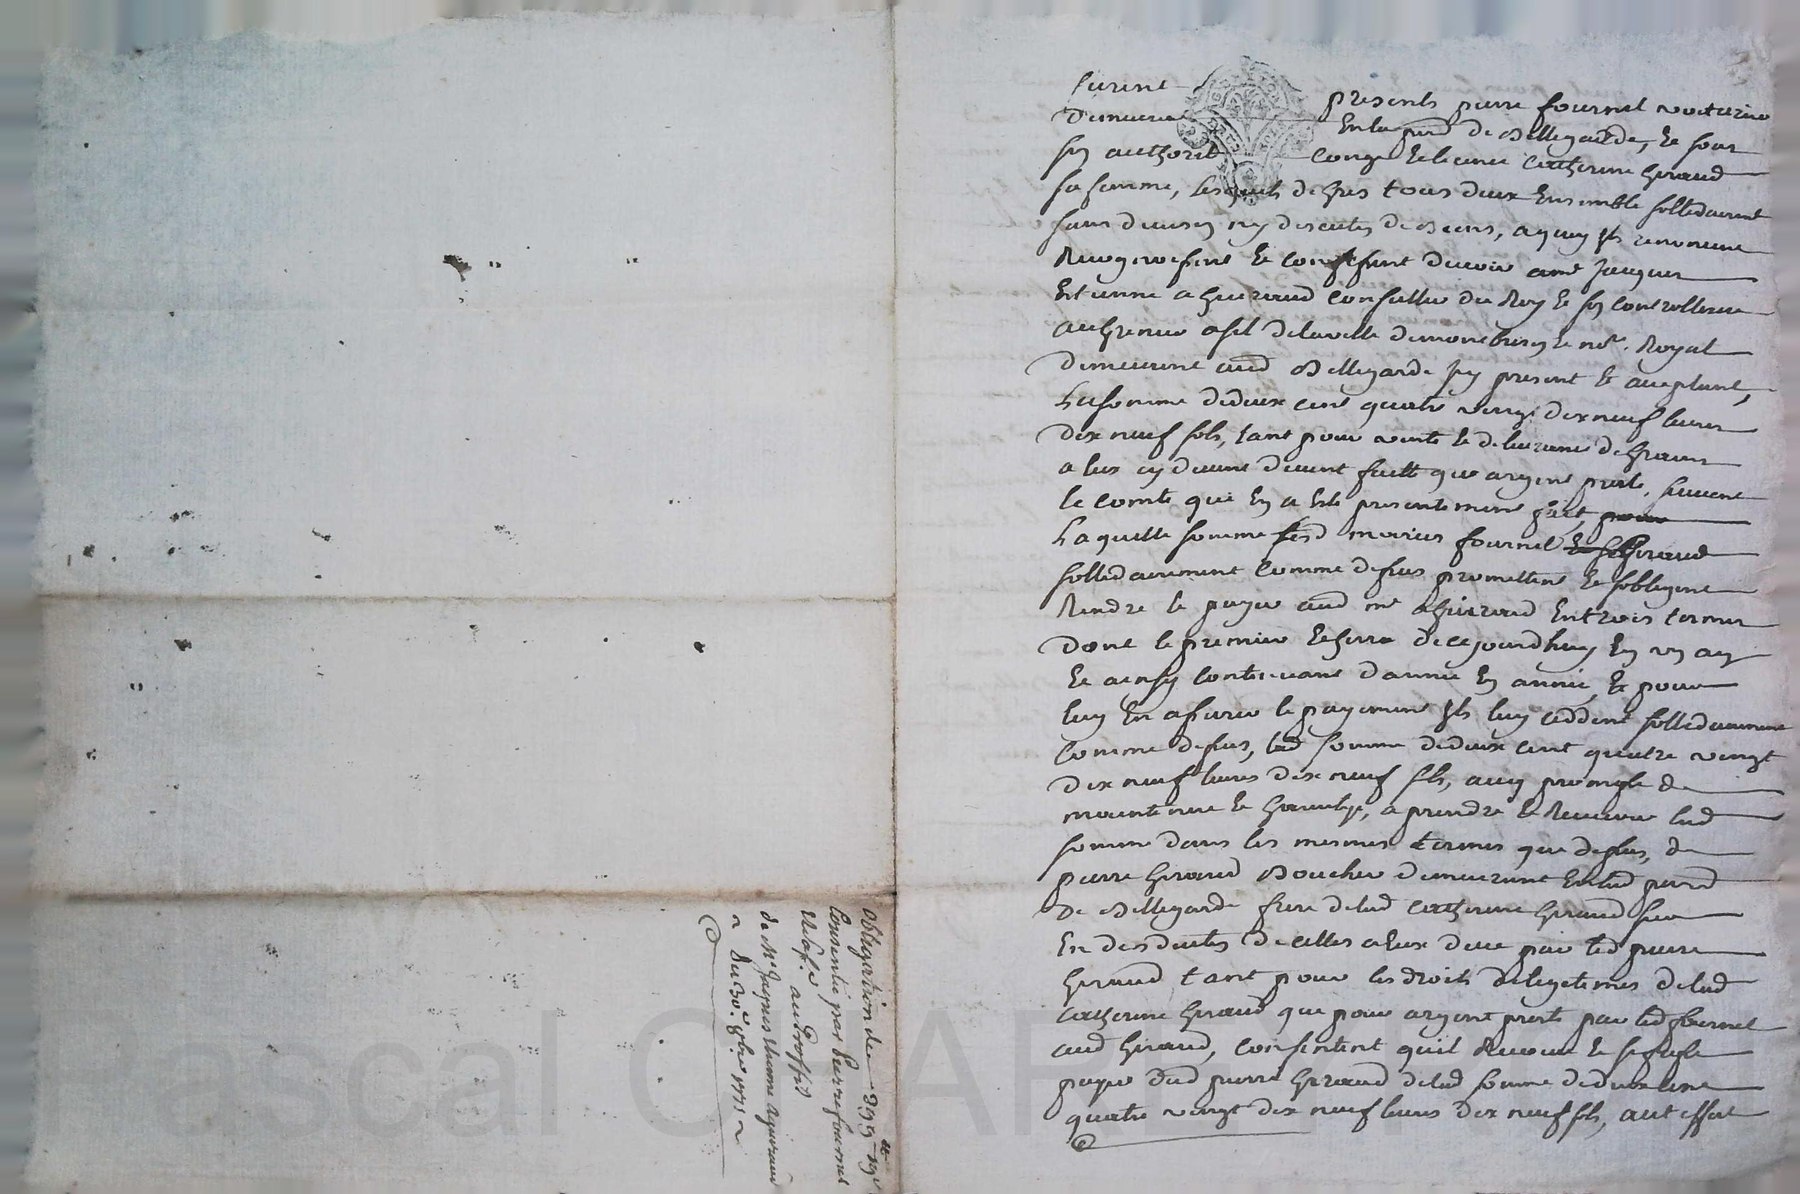 furent presents pierre fournel voiturier
demeurant En la parr.e de Bellegarde, et sous
son authorité congé et licence Catherine Giraud
sa femme, lesquels de gres tous deux Ensemble sollidairement
sans division ny discution de biens, a quoy ils renoncent
Recognoissent et confessent devoir a me Jacques
Estienne aguiraud Conseiller du Roy et son controlleur
au grenier a sel de la ville de montbrison et no.re Royal
demeurant aud Bellegarde icy present et aceptant,
La somme de deux cent quatre vingt dix neuf livres
dix neuf sols, tant pour vente et delivrance de grains
a eux cy devant faitte que argent presté, suivant
le comte que En a esté presentement fait
Laquelle somme lesd mariés fournel et Giraud
sollidairement comme dessus promettent et sobligent
Rendre et payer aud me aguiraud En trois termes
dont le premier Echerra de cejourdhuy En un an
Et ainsy continuant d'année En année, Et pour
luy En assurer le payement ils luy cèddent sollidairement
comme dessus, lad somme de deux cent quatre vingt
dix neuf livres dix neuf sols, avec promesse de
maintenir et garantir, a prendre et Recevoir lad
somme dans les mesmes termes que dessus, de
pierre Giraud Boucher demeurant En lad parr.e
de Bellegarde frere de lad Catherine Giraud sur
Et en desduction de celles a eux deue par led pierre
Giraud tant pour les droits de legitimes de lad
Catherine Giraud que pour argent presté par led fournel
aud Giraud, consentent qu'il Recoive et se fasse
payer dud pierre Giraud de lad somme de deux cent
quatre vingt dix neuf livres dix neuf sols, a cet effet
Obligation de 299 lt 19 s
Consentie par Pierre fournel
et sa f.e au Proffit
de Me Jaques Etienne aguiraud
Du 30e 8bre 1771